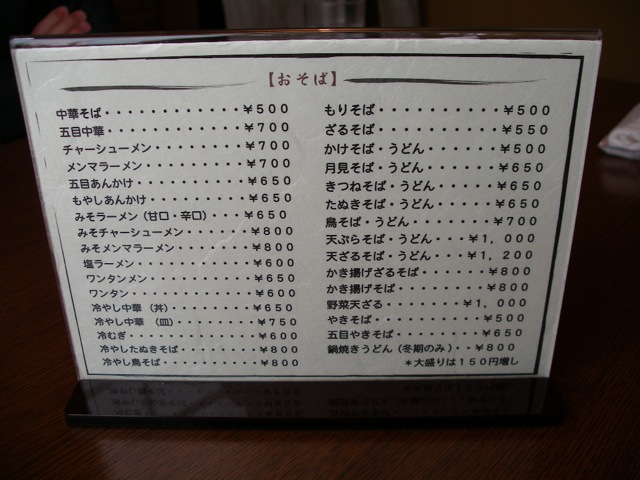 【おそば】
中華そば・・・・・・・・・・・・¥500
五目中華・・・・・・・・・・・・¥700
チャーシューメン・・・・・・・・¥700
メンマラーメン・・・・・・・・・¥700
五目あんかけ・・・・・・・・・・¥650
もやしあんかけ・・・・・・・・・¥650
みそラーメン(甘口・辛口)・・・¥650
みそチャーシューメン・・・・・・¥800
みそメンマラーメン・・・・・・・¥800
塩ラーメン・・・・・・・・・・・¥600
ワンタンメン・・・・・・・・・・¥650
ワンタン・・・・・・・・・・・・¥600
冷やし中華(丼)・・・・・・・・¥650
冷やし中華(皿)・・・・・・・・¥750
冷むぎ・・・・・・・・・・・・・¥600
冷やしたぬきそば・・・・・・・・¥800
冷やし鳥そば・・・・・・・・・・¥800
もりそば・・・・・・・・・・¥500
ざるそば・・・・・・・・・・¥550
かけそば・うどん・・・・・・¥500
月見そば・うどん・・・・・・¥650
きつねそば・うどん・・・・・¥650
たぬきそば・うどん・・・・・¥650
鳥そば・うどん・・・・・・・¥700
天ぷらそば・うどん・・・¥1,000
天ざるそば・うどん・・・¥1,200
かき揚げざるそば・・・・・・¥800
かき揚げそば・・・・・・・・¥800
野菜天ざる・・・・・・・¥1,000
やきそば・・・・・・・・・・¥500
五目やきそば・・・・・・・・¥650
鍋焼きうどん(冬期のみ)・・¥800
*大盛りは150円増し